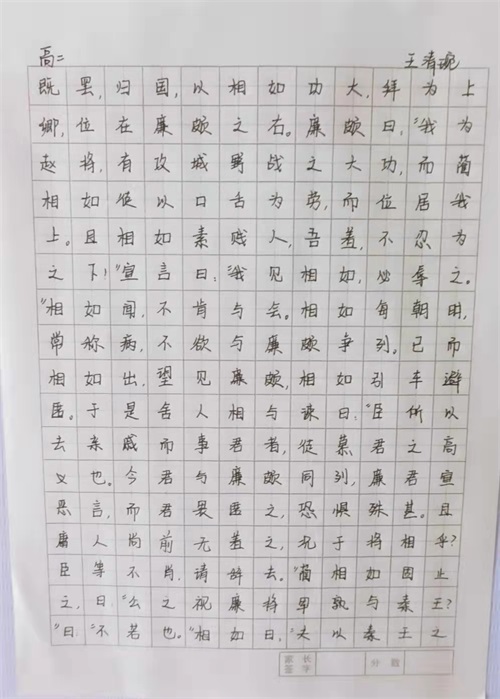 高二 王清琬
既罢,归国,以相如功大,拜为上
卿,位在廉颇之右。廉颇曰:“我为
赵将,有攻城野战之大功,而蔺
相如徒以口舌为劳,而位居我
上。且相如素贱人,吾羞,不忍为
之下!”宣言曰:“我见相如,必辱之。
”相如闻,不肯与会。相如每朝时,
常称病,不欲与廉颇争列。已而
相如出,望见廉颇,相如引车避
匿。于是舍人相与谏曰:“臣所以
去亲戚而事君者,徒慕君之高
义也。今君与廉颇同列,廉君宣
恶言,而君畏匿之,恐惧殊甚。且
庸人尚前无羞之,况于将相乎?
臣等不肖,请辞去。”蔺相如固止
之,曰:“公之视廉将军孰与秦王?
”曰:“不若也。”相如曰:“夫以秦王之
家长签字 分数